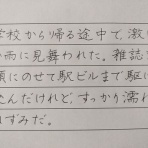 学校から帰る途中で、激
い雨に見舞われた。雑誌
頭にのせて駅ビルまで駆け
たんだけれど、すっかり濡れ
ねずみだ。